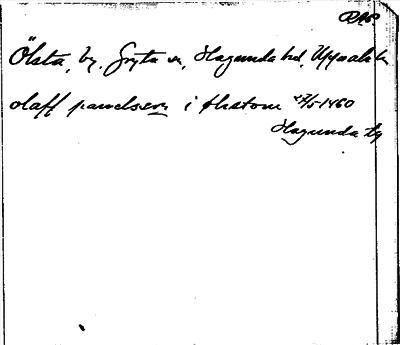 RAP
Ölsta, by, Gryta sn, Hagunda hd, Uppsala l.
olaff pawelsson i ølastom 27/5 1460
Hagunda tg